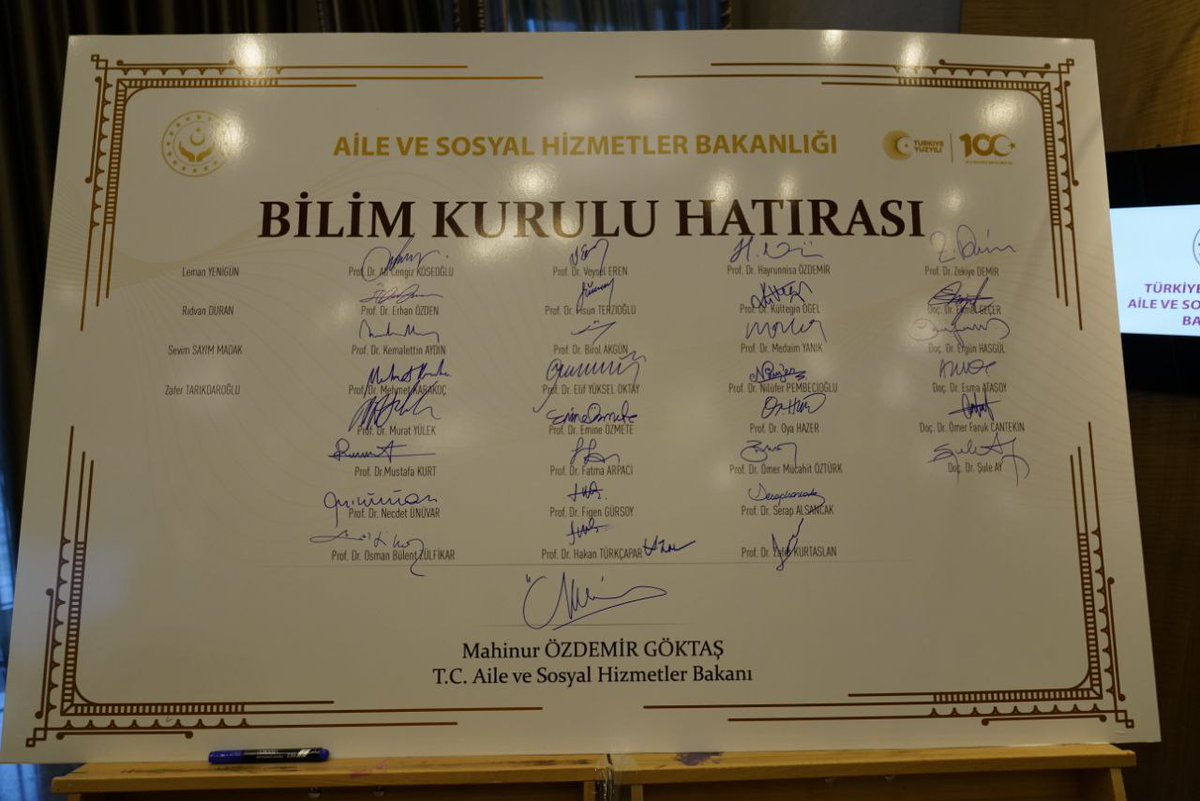 AİLE VE SOSYAL HİZMETLER BAKANLIĞI
TÜRKİYE YÜZYILI
100
BİLİM KURULU HATIRASI
Leman YENİGÜN Prof. Dr. Ali Cengiz KÖSEOĞLU Prof. Dr. Veysel EREN Prof. Dr. Hayrunnisa ÖZDEMİR Prof. Dr. Zekiye DEMİR
Rıdvan DURAN Prof. Dr. Erhan ÖZDEN Prof. Dr. TERZİOĞLU Prof. Dr. Kültegin ÖGEL Doç. Dr. SEÇER
Sevim SAYIM MADAK Prof. Dr. Kemalettin AYDIN Prof. Dr. Birol AKGÜN Prof. Dr. Medaim YANIK Doç. Dr. Ergün HASGÜL
Zafer TARIKDAROĞLU Prof. Dr. Mehmet KARAKOÇ Prof. Dr. Elif YÜKSEL OKTAY Prof. Dr. Nilüfer PEMBECİOĞLU Doç. Dr. Esma ATASOY
Prof. Dr. Murat YÜLEK Prof. Dr. Emine ÖZMETE Prof. Dr. Oya HAZER Doç. Dr. Ömer Faruk CANTEKİN
Prof. Dr.Mustafa KURT Prof. Dr. Fatma ARPACI Prof. Dr. Ömer Mücahit ÖZTÜRK Doç. Dr. Şule AY
Prof. Dr. Necdet ÜNÜVAR Prof. Dr. Figen GÜRSOY Prof. Dr. Serap ALSANCAK
Prof. Dr. Osman Bülent ZÜLFİKAR Prof. Dr. Hakan TÜRKÇAPAR Prof. Dr. KURTASLAN
Mahinur ÖZDEMİR GÖKTAŞ
T.C. Aile ve Sosyal Hizmetler Bakanı
TÜRKİYE
AİLE VE SO
BA